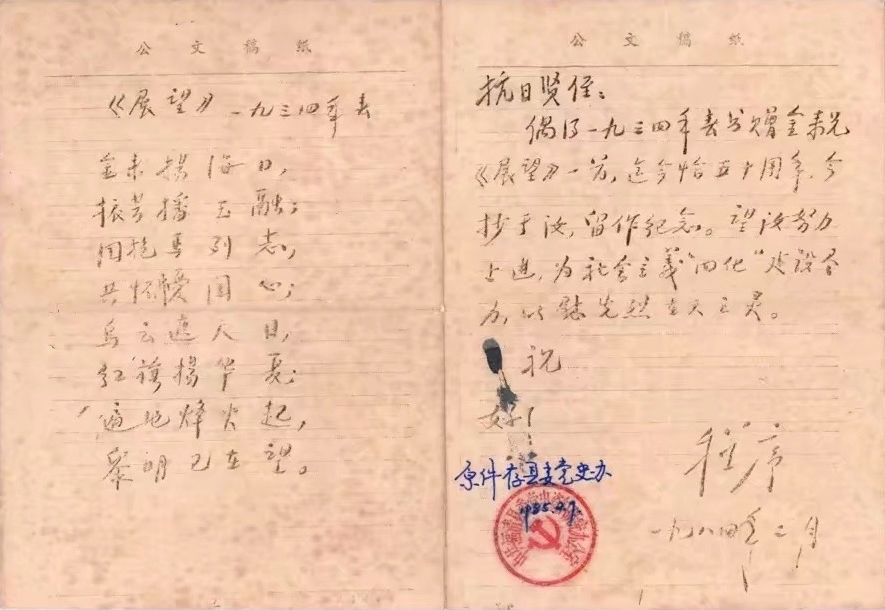 公文稿纸
《展望》 一九三四年春
金来扬海日,
振芳播玉融;
同抱马列志,
共怀忧国心;
乌云遮天日,
红旗扬华夏;
遍地烽火起,
黎明已在望。
公文稿纸
抗日贤侄:
偶得一九三四年春书赠金来兄
《展望》一首,迄今恰五十周年,今
抄于汝,留作纪念。望汝努力
上进,为社会主义"四化"建设尽
力,以慰先烈在天之灵。
祝
好!
程序
一九八四年二月
原件存县委党史办
1985.9.7.